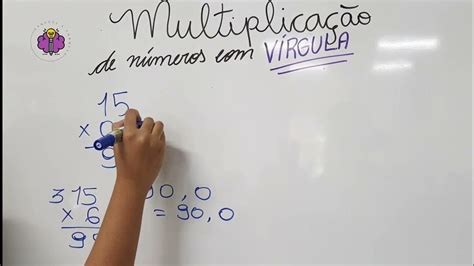 Multiplicação
de números com VÍRGULA
15
x 0
9
315 00,0
x 6 = 90,0
9